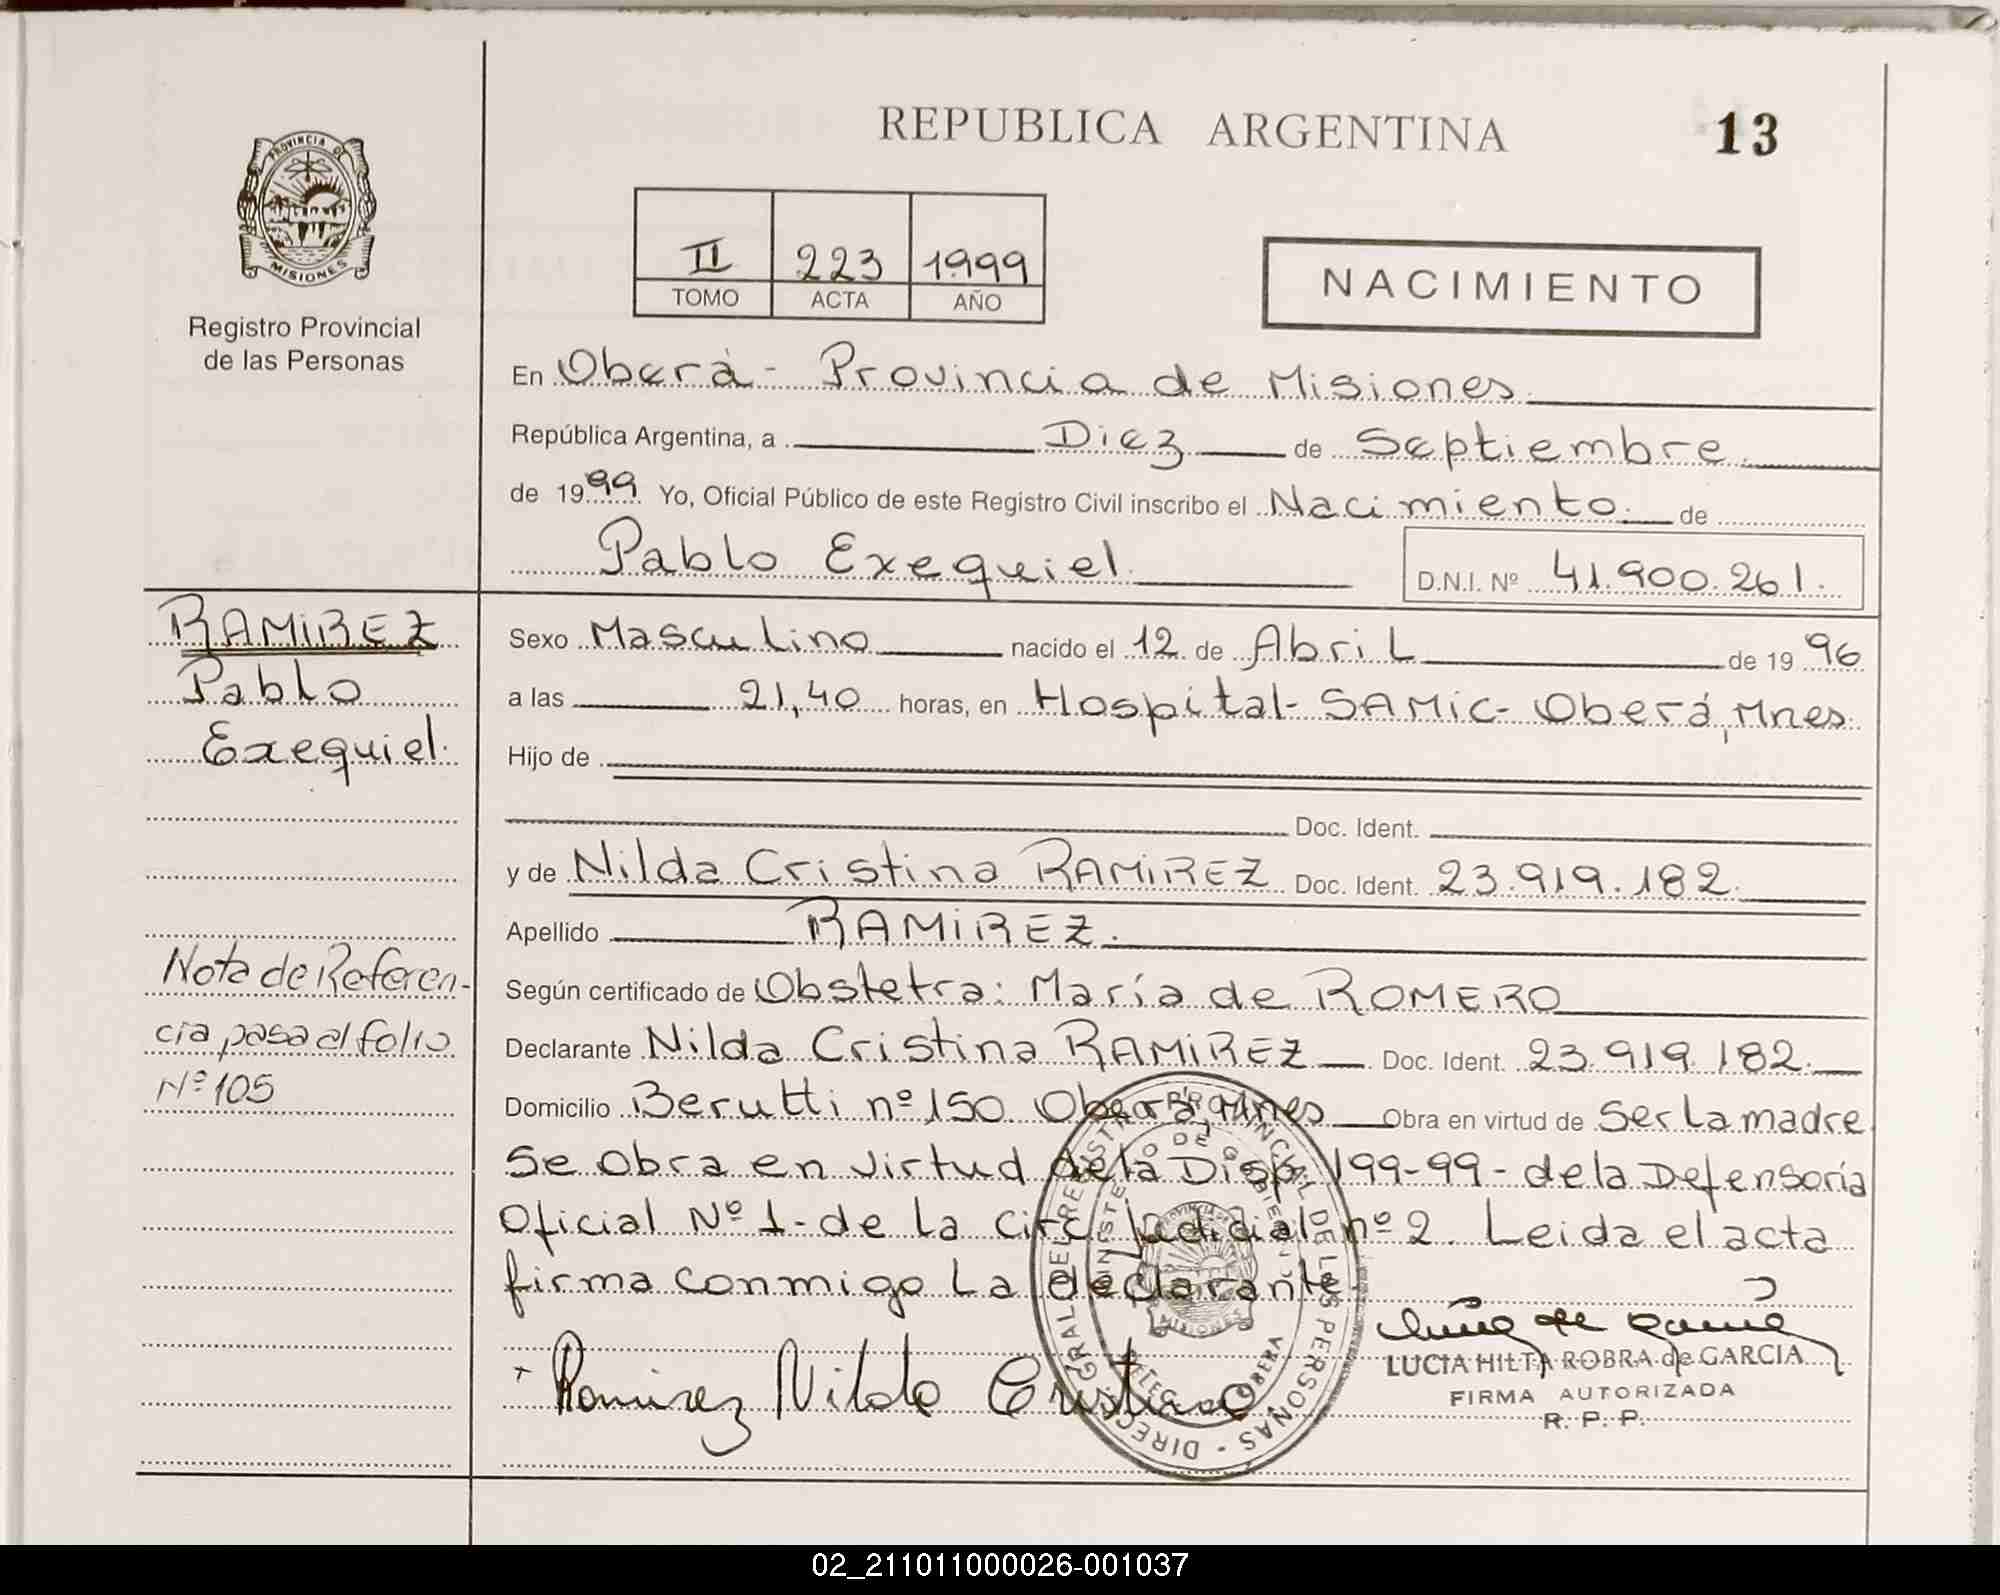 REPUBLICA ARGENTINA
13
PROVINCIA DE
MISIONES
Registro Provincial
de las Personas
II 223 1999
TOMO ACTA AÑO
NACIMIENTO
En Oberá - Provincia de Misiones
República Argentina, a Diez de Septiembre
de 1999 Yo, Oficial Público de este Registro Civil inscribo el Nacimiento. de
Pablo Exequiel. D.N.I. Nº 41.900.261.
RAMIREZ
Pablo
Exequiel.
Nota de Referen-
cia pasa al folio
Nº 105
Sexo Masculino nacido el 12 de Abril de 1996
a las 21,40 horas, en Hospital - SAMIC - Oberá, Mnes.
Hijo de
Doc. Ident.
y de Nilda Cristina RAMIREZ Doc. Ident. 23.919.182.
Apellido RAMIREZ.
Según certificado de Obstetra: María de ROMERO
Declarante Nilda Cristina RAMIREZ Doc. Ident. 23.919.182.
Domicilio Berutti nº 150 Oberá, Mnes Obra en virtud de Ser la madre
Se obra en virtud de la Disp 199-99 - de la Defensoría
Oficial Nº 1 - de la Circ. Judicial nº 2. Leida el acta
firma conmigo la declarante.
Ramirez Nilda Cristina
LUCIA HILTA ROBRA de GARCIA
FIRMA AUTORIZADA
R. P. P.
DIREC GRAL DEL REGISTRO PROVINCIAL DE LAS PERSONAS
MINISTERIO DE GOBIERNO
MISIONES
OBERA
02_211011000026-001037